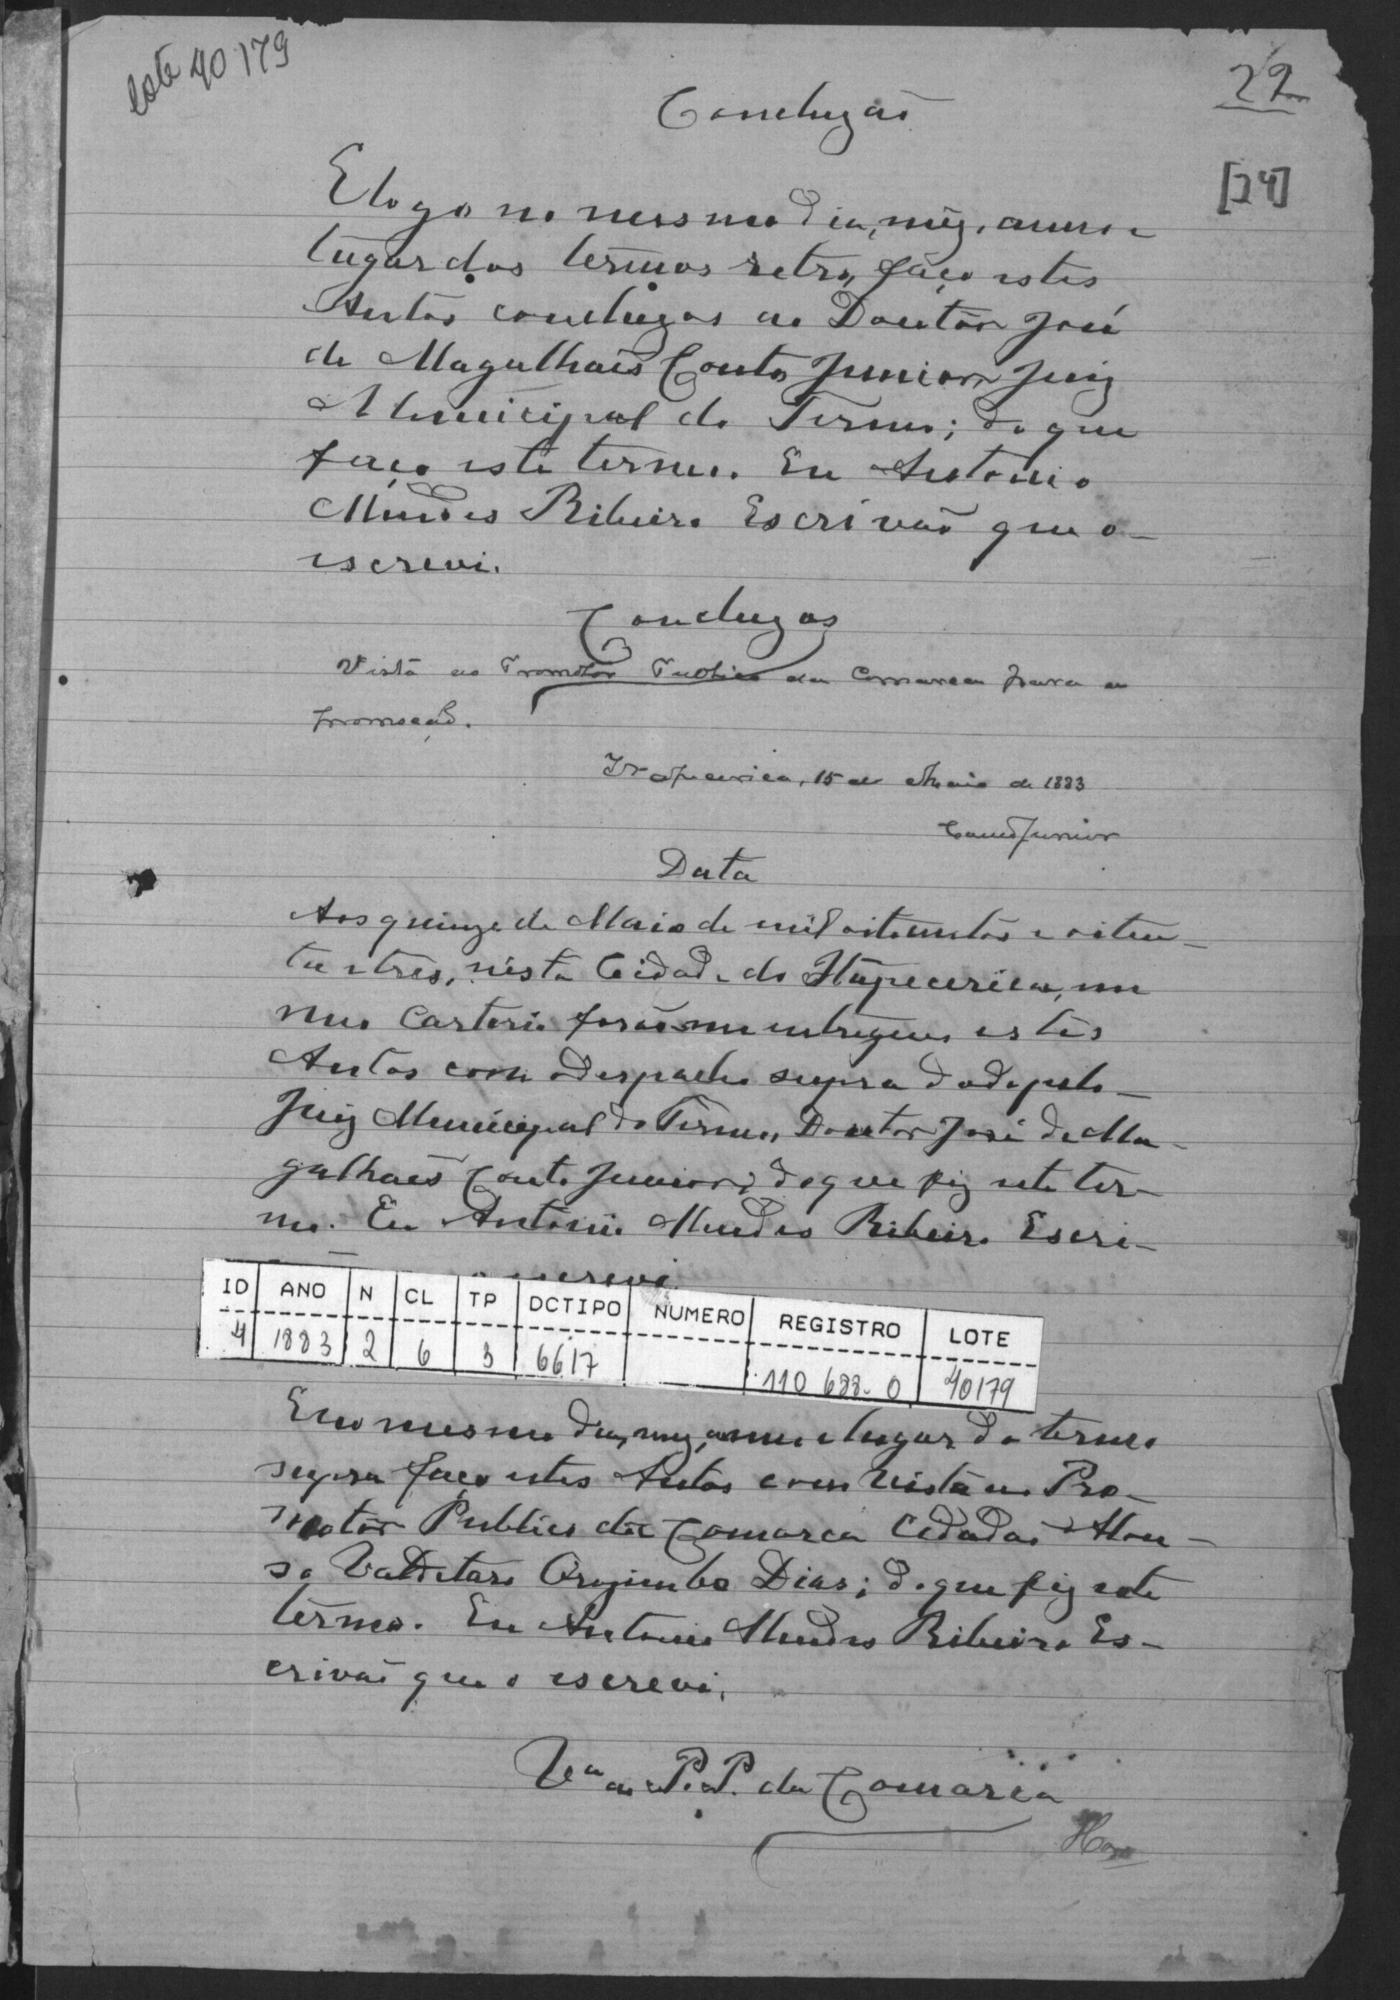 lote 40179
22
[24]
Concluzão
E logo no mesmo dia, mez, anno e
lugar dos termos retro, faço estes
Autos concluzos ao Doutôr José
de Magalhaẽs Couto Junior Juiz
Municipal do Termo; do que
faço este termo. Eu Antonio
Mendes Ribeiro Escrivaõ que o
escrevi.
Concluzos
Vista ao Promotor Publico da Comarca para a
promoção.
Itapecerica, 15 de Maio de 1883
Couto Junior
Data
Aos quinze de Maio de mil oitocentos e oiten-
ta e tres, nesta Cidade de Itapecerica, em
meo Cartorio foraõ me entregues estes
Autos com o despacho supra dado pelo
Juiz Municipal do Termo, Doutor José de Ma-
galhaẽs Couto Junior; do que fiz este ter-
mo. Eu Antonio Mendes Ribeiro Escri-
o escrevi.
ID ANO N CL TP DCTIPO NUMERO REGISTRO LOTE
4 1883 2 6 3 6617 110 688-0 40179
E no mesmo dia, mez, anno e lugar do termo
supra faço estes Autos com vista ao Pro-
motor Publico da Comarca Cidadaõ
Dias; do que fiz este
termo. Eu Antonio Mendes Ribeiro Es-
crivaõ que o escrevi.
Vᵃ ao P. P. da Comarca